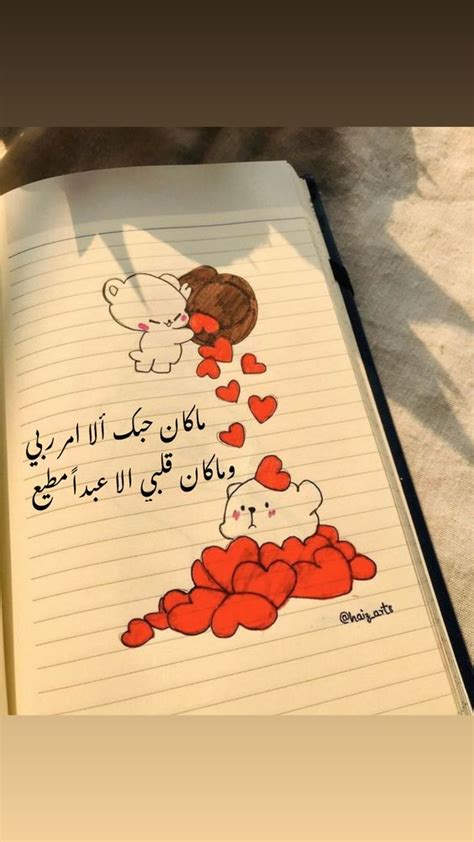 ماكان حبك ألا امر ربي
وماكان قلبي الا عبداً مطيع
@haiz.arts